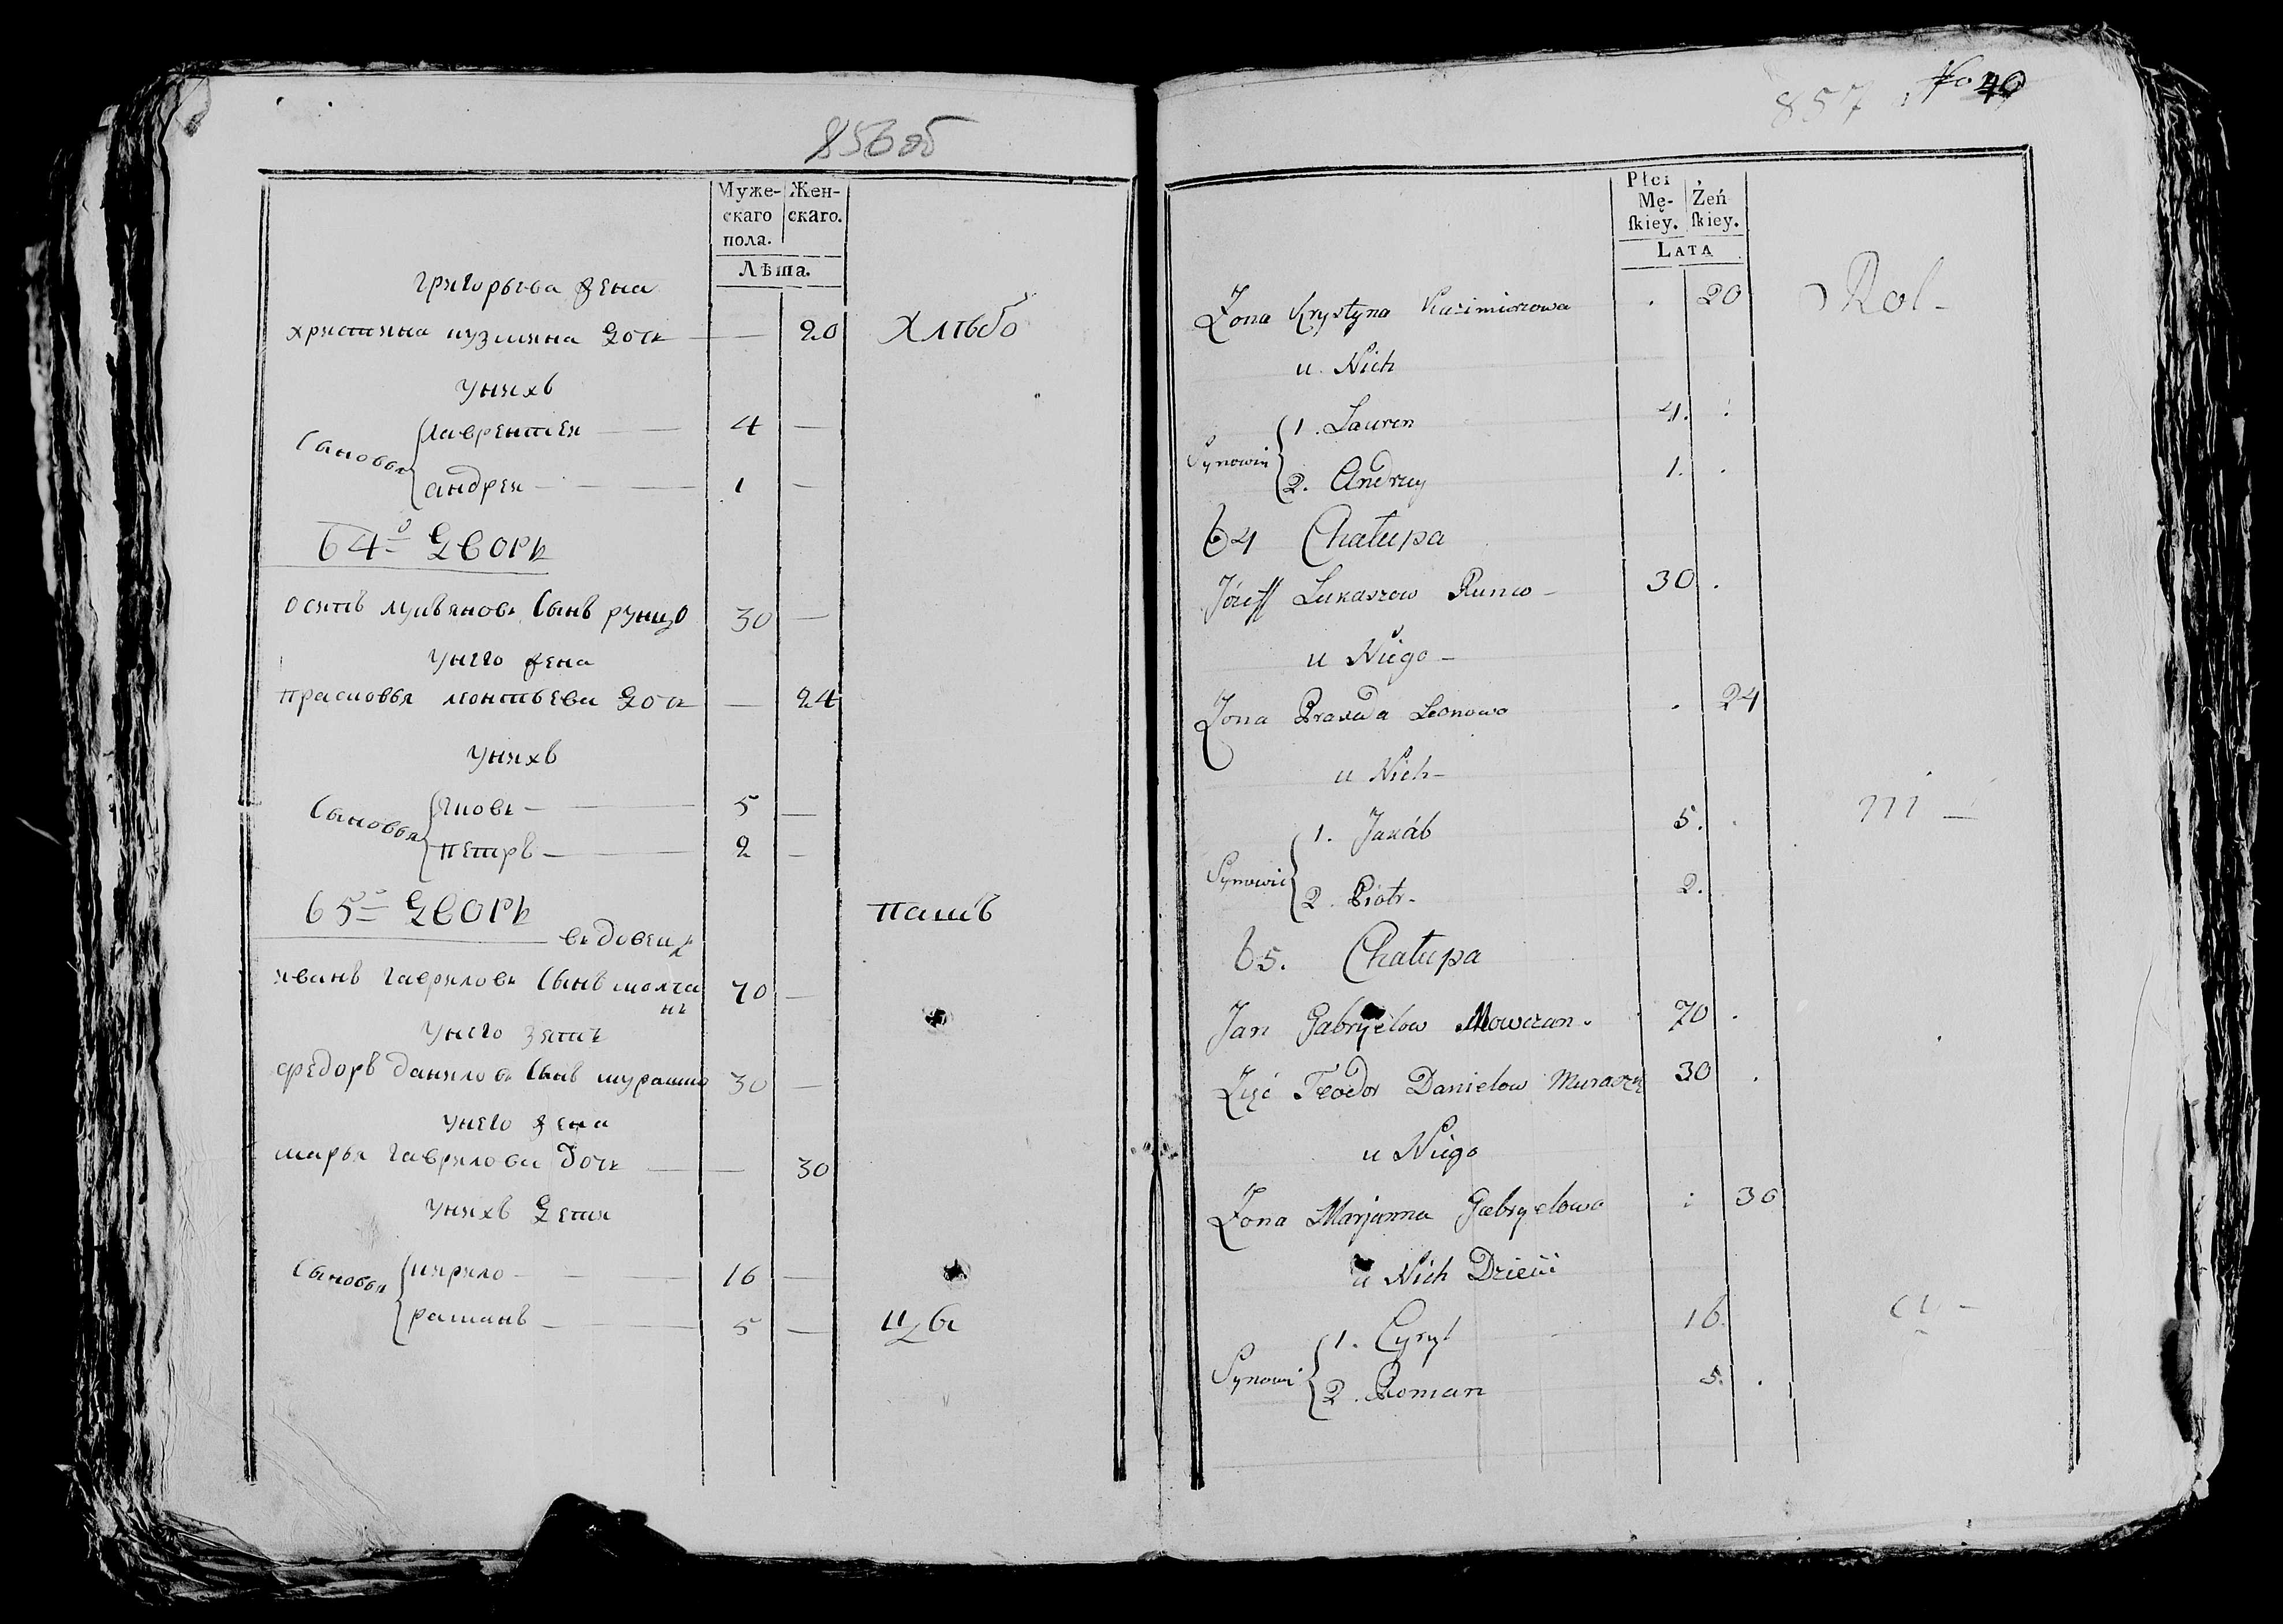 856об
Муже-
скаго
пола.
Жен-
скаго.
Лѣта.
григорьева жена
христина кузмина дочь — 20 Хлѣбо
у нихъ
Сыновья
лаврентей — 4 —
андрей — 1 —
64й Дворъ
осипъ лукьяновъ Сынъ рунцо 30 —
у него жена
прасковья леонтьева дочь — 24
у нихъ
Сыновья
яковъ — 5 —
петръ — 2 —
65й Дворъ
паш
въдовецъ
иванъ гавриловъ Сынъ молча
нъ 70 —
у него зять
федоръ даниловъ Сынъ мурашко 30 —
у него жена
марья гаврилова дочь — 30
у нихъ дети
Сыновья
кирило — 16 —
романъ — 5 — цы
857
No 40
Płci
Mę-
ſkiey.
Żeń
ſkiey.
LATA
Żona Krystyna Kazimierzowa . 20 Rol-
u Nich
Synowie
1. Lauren 4. .
2. Andrzey 1. .
64 Chałupa
Józeff Łukaszow Runco - 30 .
u Niego -
Żona Leonowa . 24
u Nich -
Synowie
1. Jakób 5. . ni -
2. Piotr - 2.
65. Chałupa
Jan Gabryelow Mowczan . 70 .
Zięć Teodor Danielow Muraszk 30 .
u Niego
Żona Marjanna Gabryelowa : 30
u Nich Dzieci
Synowie
1. Cyryl 16. cy -
2. Roman 5. .